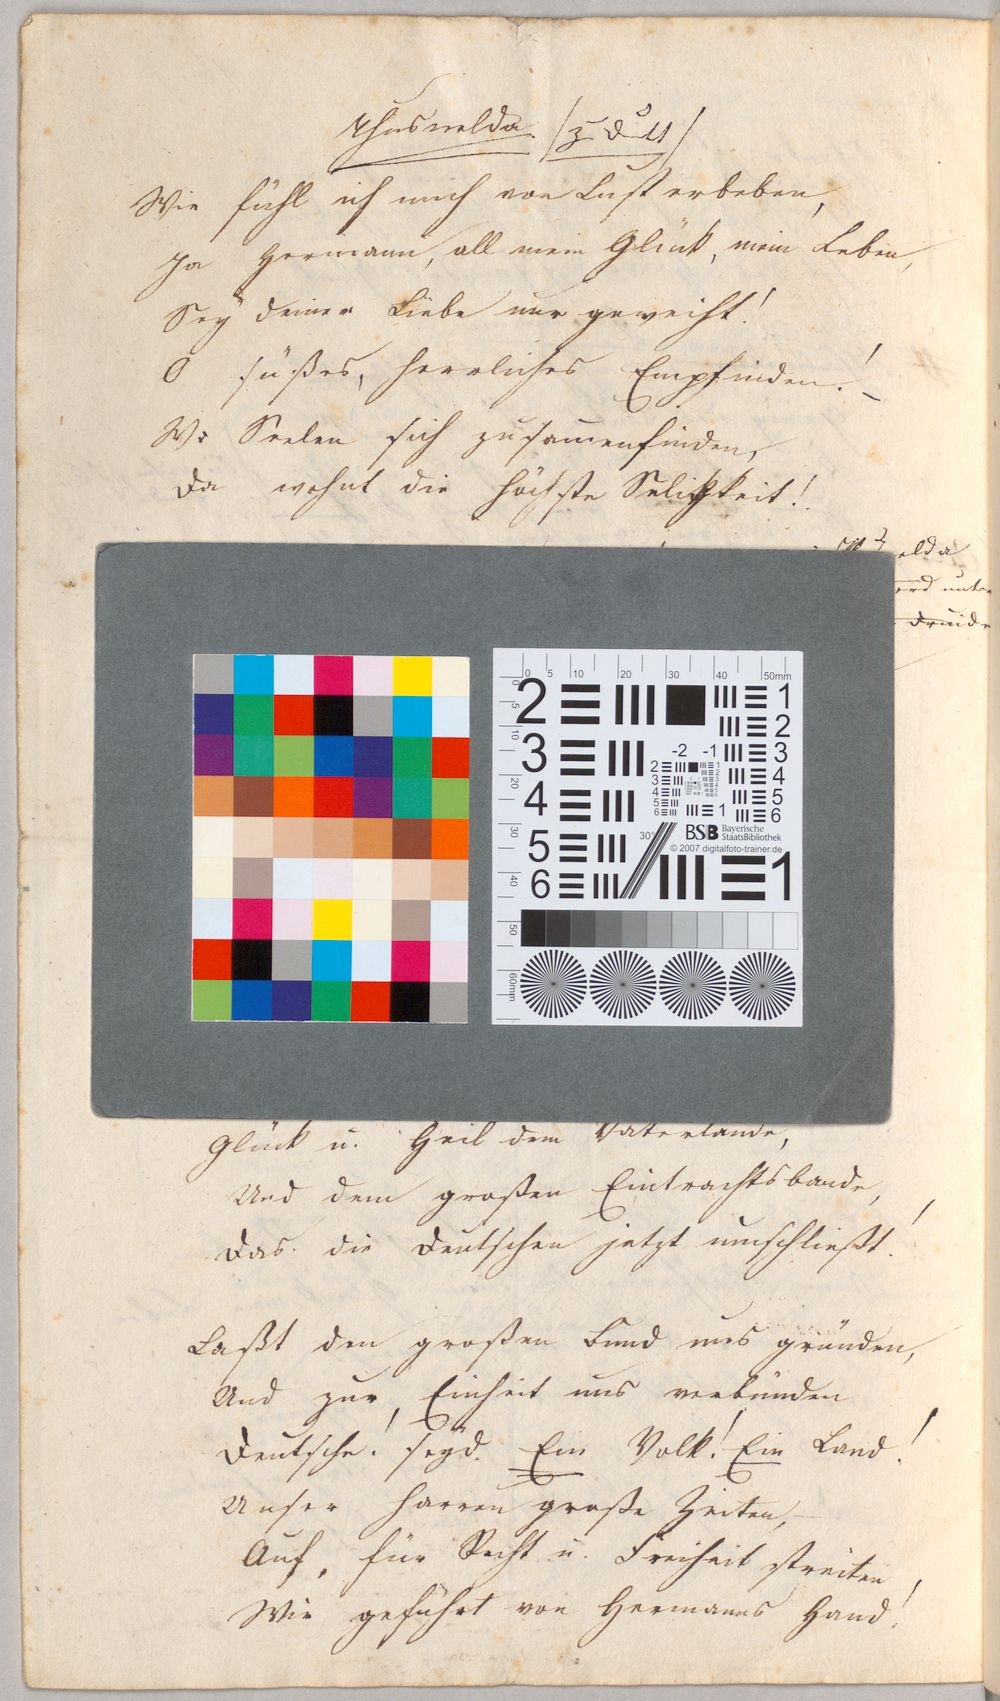 Thusnelda (zu Dutt)
Wie fühl ich mich von Lust erbeben,
Ja Hermann, all mein Glück, mein Leben,
Sey deiner Liebe nur geweiht!
O süßes, herrliches Empfinden! –
Wo Seelen sich zusammenfinden,
Da wohnt die höchste Seligkeit!
elda
unter
Druide
0 5 10 20 30 40 50mm
0 5 10 20 30 40 50 60mm
2 1
2
3 -2 -1 3
4 4
5 5
6 6
2 1
3 2
4 3
5 4
6 5
6
1
30°
BSB Bayerische StaatsBibliothek
© 2007 digitalfoto-trainer.de
1
Glück u. Heil dem Vaterlande,
Und dem großen Eintrachtsbande,
Das die Deutschen jetzt umschließt!
Laßt den großen Bund uns gründen,
Und zur Einheit uns verbünden
Deutsche! seyd Ein Volk! Ein Land!
Unser harren große Zeiten, –
Auf, für Recht u. Freiheit streiten
Wir geführt von Hermanns Hand!